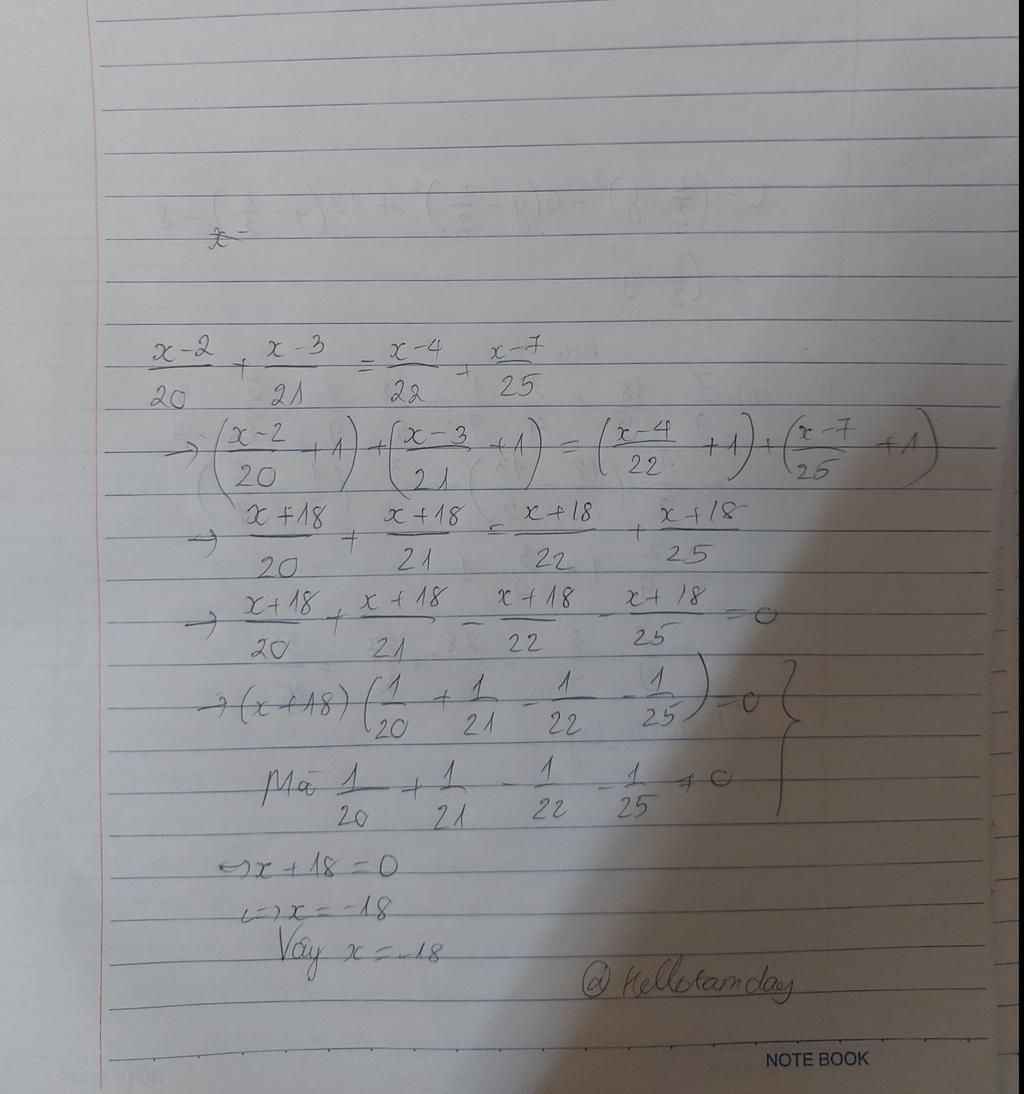 x -
x-2/20 + x-3/21 = x-4/22 + x-7/25
→ (x-2/20 + 1) + (x-3/21 + 1) = (x-4/22 + 1) + (x-7/25 + 1)
→ x+18/20 + x+18/21 = x+18/22 + x+18/25
→ x+18/20 + x+18/21 - x+18/22 - x+18/25 = 0
→ (x+18) (1/20 + 1/21 - 1/22 - 1/25) = 0 }
Mà 1/20 + 1/21 - 1/22 - 1/25 ≠ 0
↔ x + 18 = 0
⇔ x = -18
Vậy x = -18
@ Hellotamday
NOTE BOOK